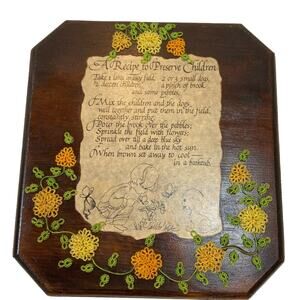 A Recipe to Preserve Children
Take 1 large grassy field, 2 or 3 small dogs,
½ dozen children, a pinch of brook
and some pebbles.
Mix the children and the dogs
well together and put them in the field,
constantly stirring.
Pour the brook over the pebbles;
Sprinkle the field with flowers;
Spread over all a deep blue sky
and bake in the hot sun.
When brown set away to cool
in a bathtub.